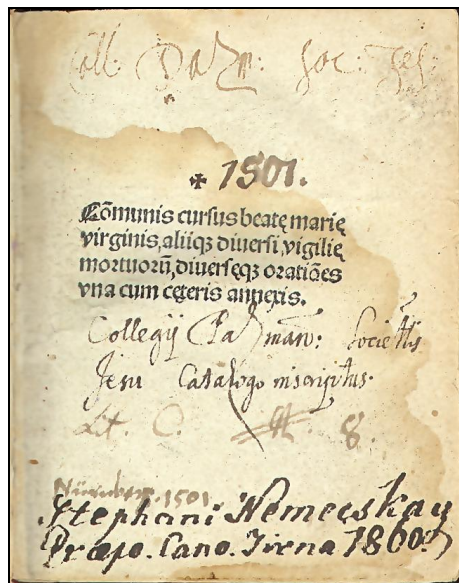 Coll: Pazm: Soc: Jes:
✠ 1501.
Cōmunis cursus beatę marię
virginis, aliiqꝫ diuersi, vigilię
mortuorū, diuersęqꝫ oratiões
vna cum cęteris annexis.
Collegij Pazman: Societtis
Jesu Catalogo inscriptus.
Lit. C. 8.
Nürnberg. 1501
Stephani Nemecskay
Præpo. Cano. Tirna 1860.